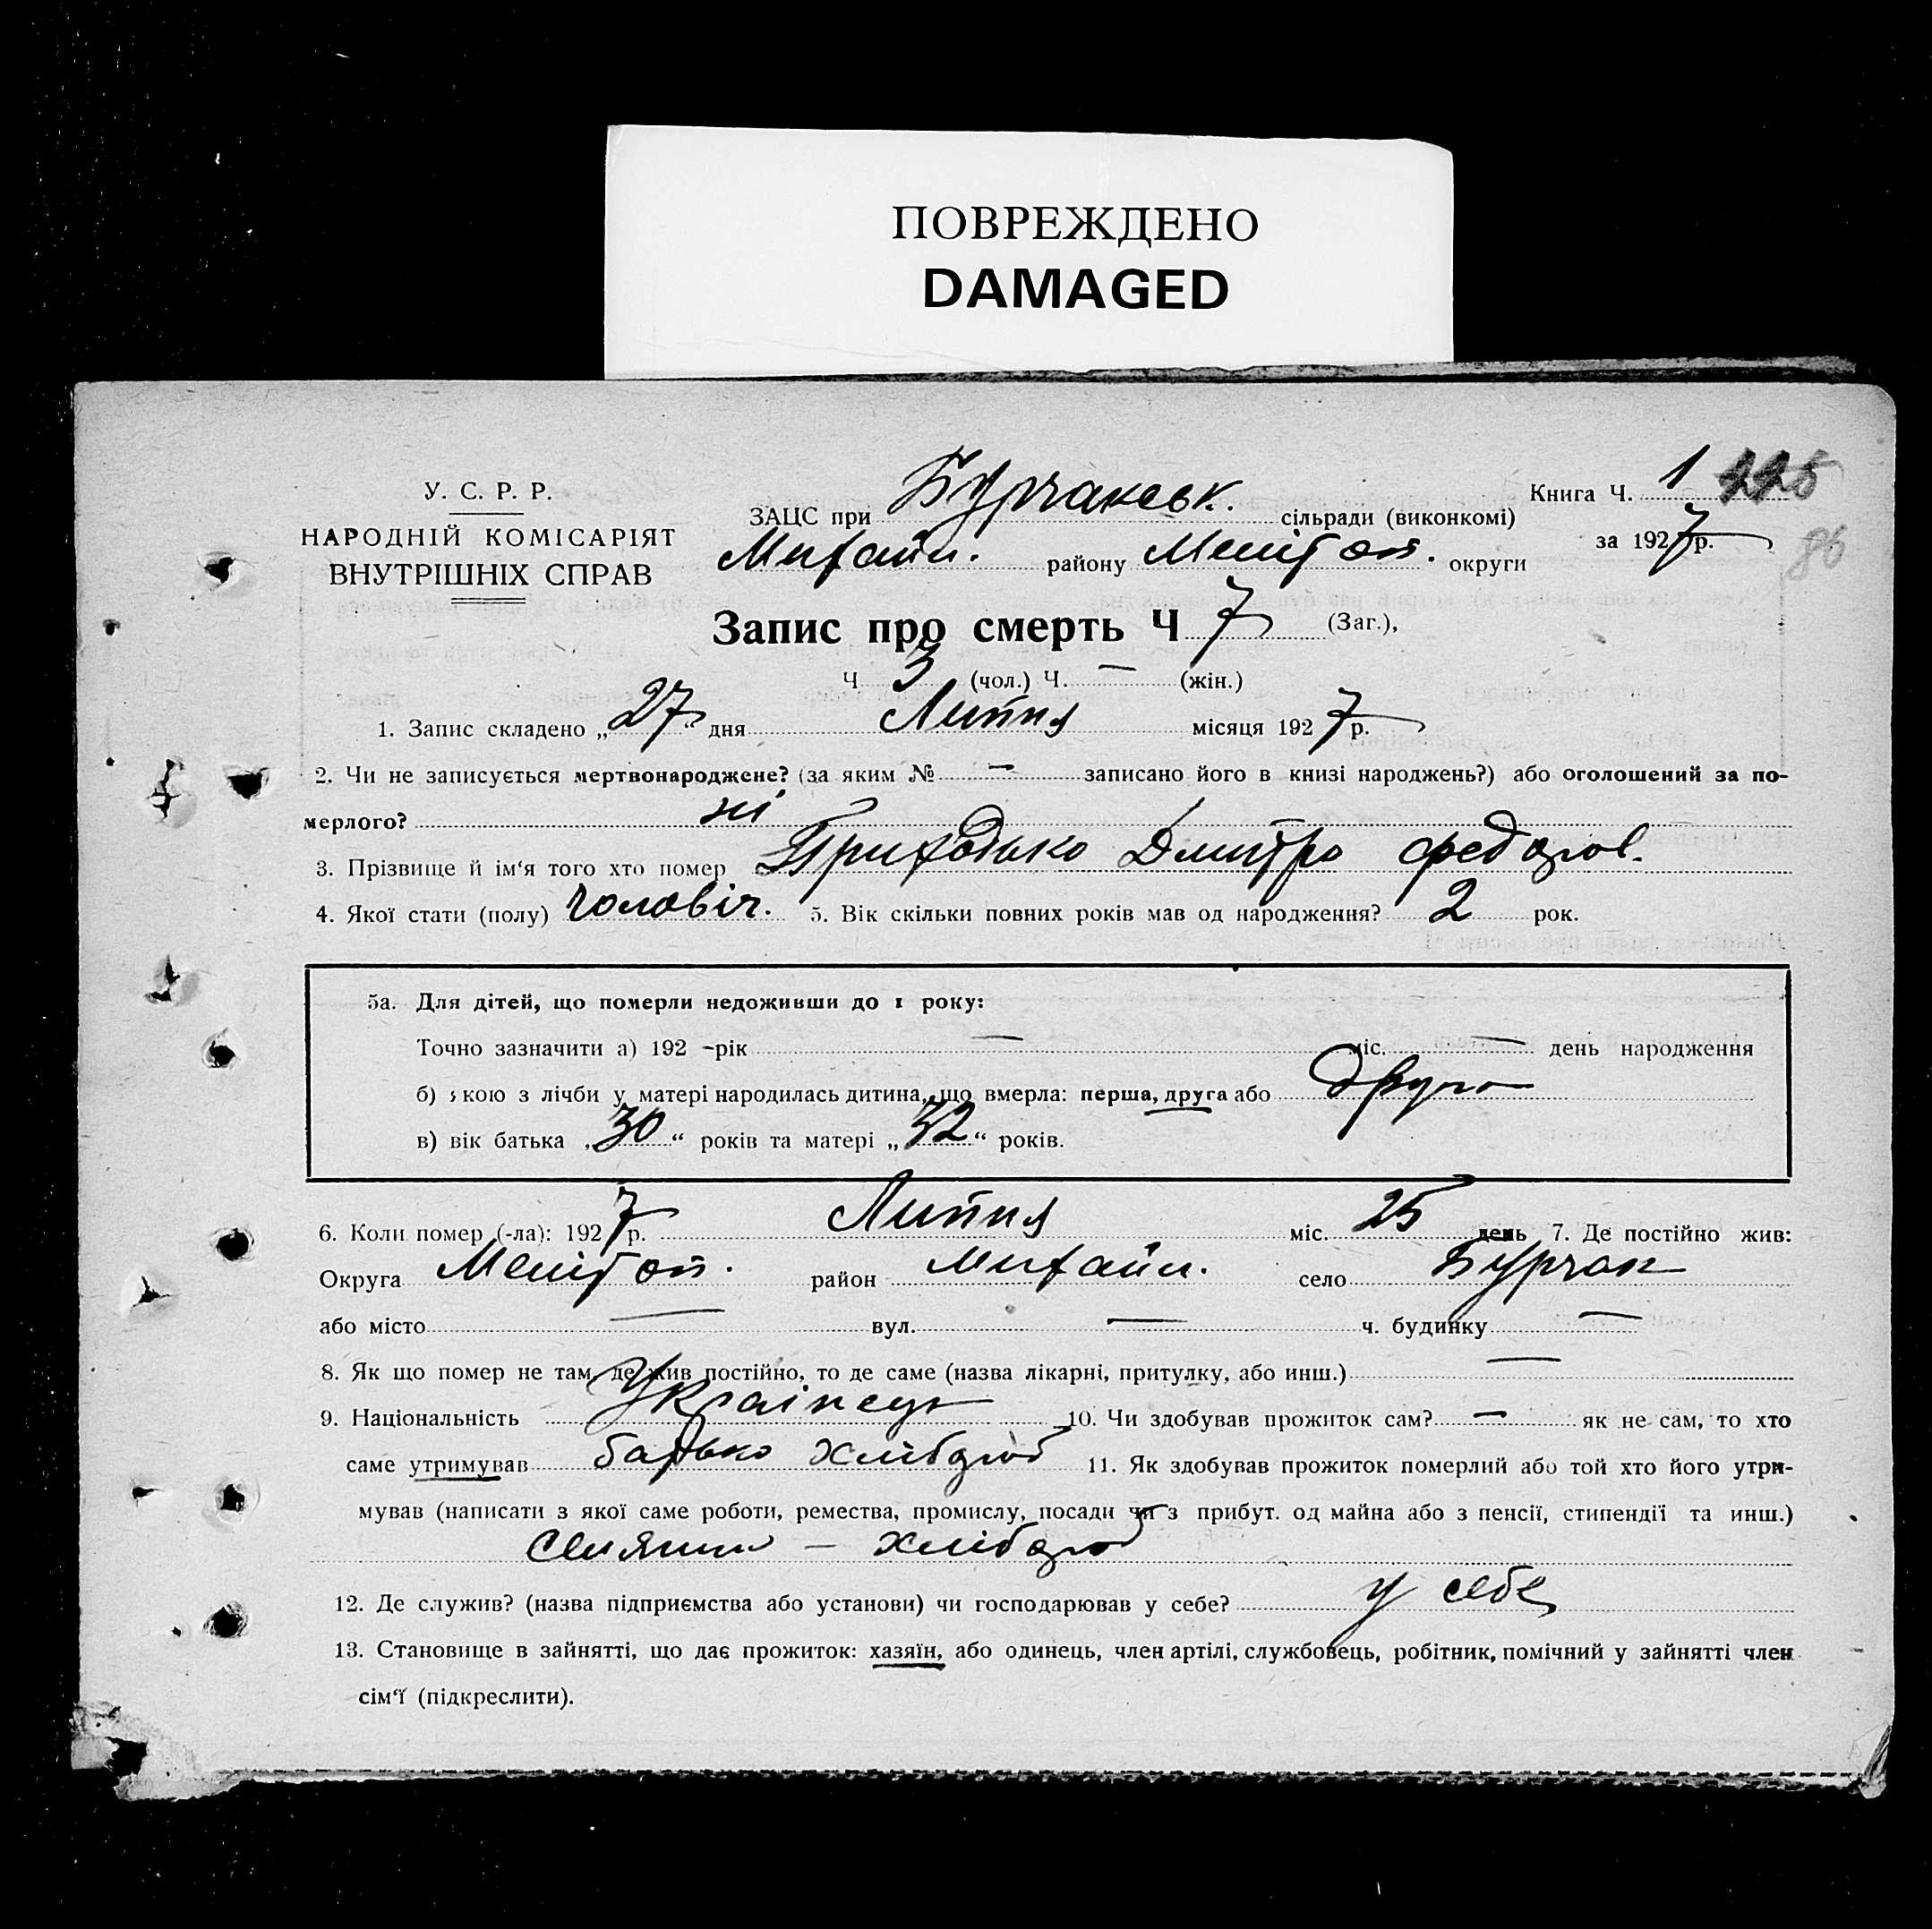 ПОВРЕЖДЕНО
DAMAGED
У. С. Р. Р.
НАРОДНІЙ КОМІСАРІЯТ
ВНУТРІШНІХ СПРАВ
ЗАЦС при Бурчакськ. сільради (виконкомі)
Михайл. району Меліtоп. округи
Книга Ч. 1 225
за 1927 р. 86
Запис про смерть Ч 7 (Заг.),
Ч 3 (чол.) Ч. — (жін.)
1. Запис складено „27“ дня Липня місяця 1927 р.
2. Чи не записується мертвонароджене? (за яким № — записано його в книзі народжень?) або оголошений за по-
мерлого? ні
3. Прізвище й ім'я того хто помер Приходько Дмитро Федоров.
4. Якої стати (полу) чоловіч. 5. Вік скільки повних років мав од народження? 2 рок.
5а. Для дітей, що померли недоживши до 1 року:
Точно зазначити а) 192 -рік — міс. — день народження
б) якою з лічби у матері народилась дитина, що вмерла: перша, друга або друга
в) вік батька „30“ років та матері „32“ років.
6. Коли помер (-ла): 1927 р. Липня міс. 25 день 7. Де постійно жив:
Округа Меліtоп. район Михайл. село Бурчак
або місто — вул. — ч. будинку —
8. Як що помер не там, де жив постійно, то де саме (назва лікарні, притулку, або инш.) —
9. Національність Українець 10. Чи здобував прожиток сам? — як не сам, то хто
саме утримував батько хлібороб 11. Як здобував прожиток померлий або той хто його утри-
мував (написати з якої саме роботи, ремества, промислу, посади чи з прибут. од майна або з пенсії, стипендії та инш.)
селянин — хлібороб
12. Де служив? (назва підприємства або установи) чи господарював у себе? у себе
13. Становище в зайнятті, що дає прожиток: хазяїн, або одинець, член артілі, службовець, робітник, помічний у зайнятті член
сім'ї (підкреслити).